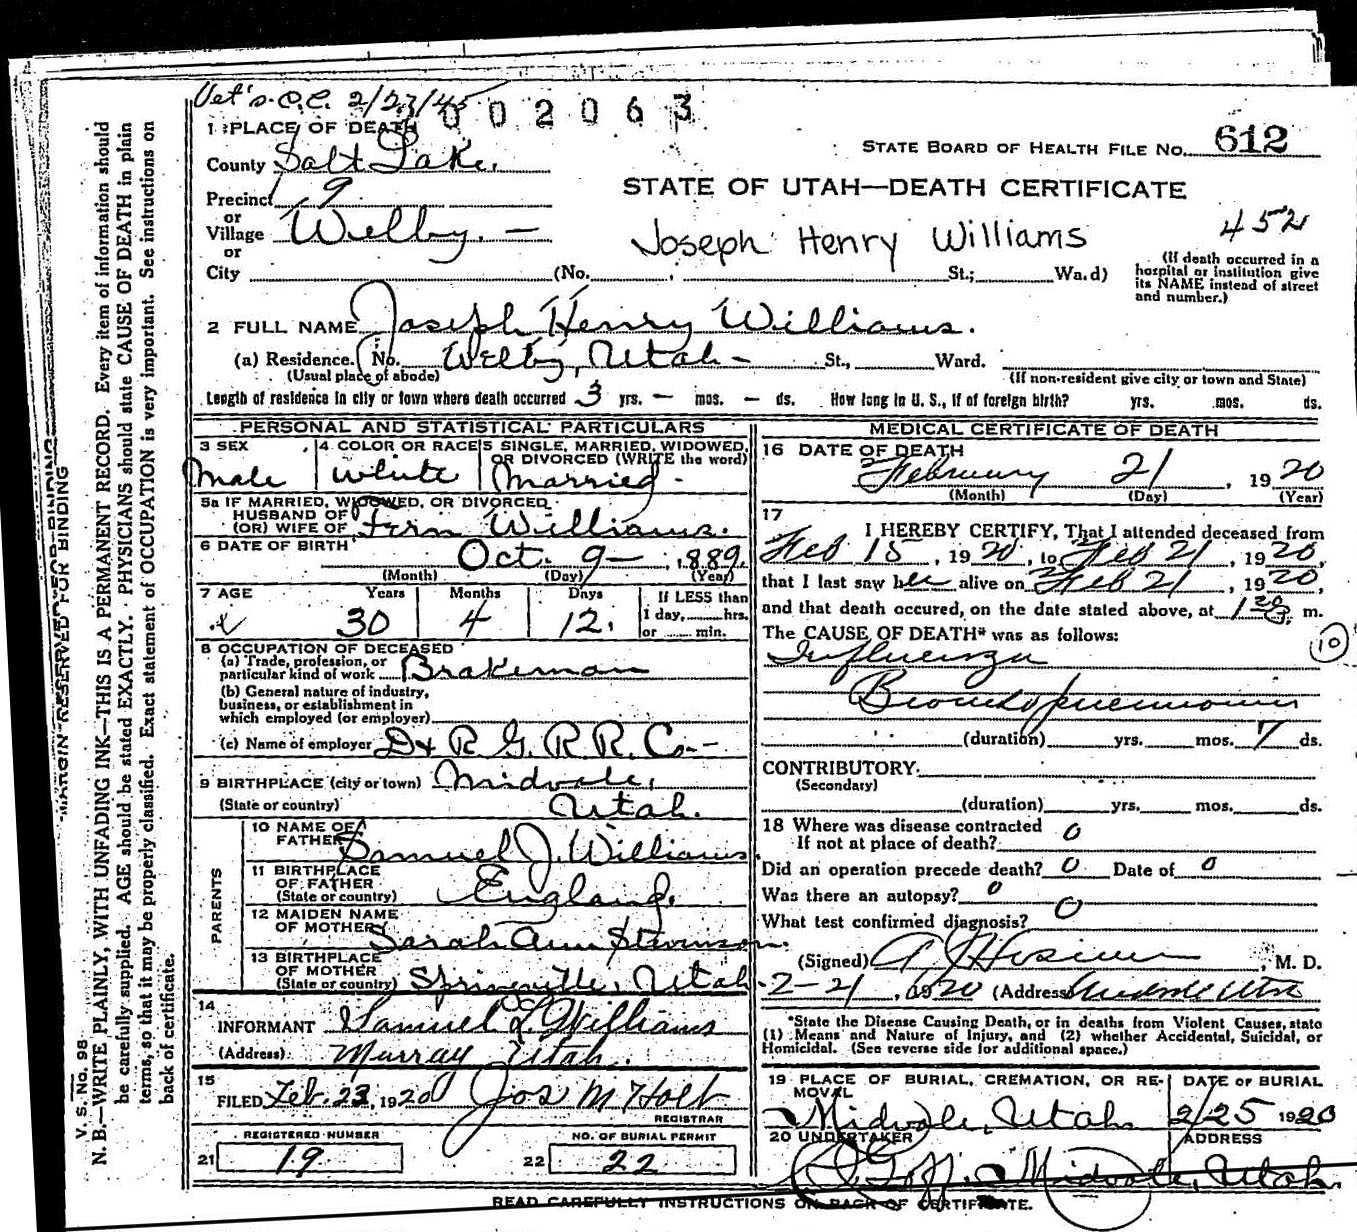 Vet's. 2/27/45
002063
1 PLACE OF DEATH
County Salt Lake.
STATE BOARD OF HEALTH FILE No. 612
Precinct 9
or
STATE OF UTAH—DEATH CERTIFICATE
Village Welby. —
or
Joseph Henry Williams
452
City (No. St.; Wa.d)
(If death occurred in a
hospital or institution give
its NAME instead of street
and number.)
2 FULL NAME Joseph Henry Williams.
(a) Residence. No. Welby, Utah- St., Ward.
(Usual place of abode)
(If non-resident give city or town and State)
Length of residence in city or town where death occurred 3 yrs. — mos. — ds. How long in U. S., if of foreign birth? yrs. mos. ds.
PERSONAL AND STATISTICAL PARTICULARS
3 SEX
Male
4 COLOR OR RACE
White
5 SINGLE, MARRIED, WIDOWED,
OR DIVORCED (WRITE the word)
Married-
5a IF MARRIED, WIDOWED, OR DIVORCED
HUSBAND OF
(OR) WIFE OF Fern Williams.
6 DATE OF BIRTH
Oct. 9 — , 1889.
(Month) (Day) (Year)
7 AGE Years Months Days
30 4 12.
If LESS than
1 day, hrs.
or min.
8 OCCUPATION OF DECEASED
(a) Trade, profession, or
particular kind of work Brakeman
(b) General nature of industry,
business, or establishment in
which employed (or employer)
(c) Name of employer D & R. G. R. R. Co.-
9 BIRTHPLACE (city or town) Midvale,
(State or country) Utah.
PARENTS
10 NAME OF
FATHER Samuel J. Williams
11 BIRTHPLACE
OF FATHER
(State or country) England.
12 MAIDEN NAME
OF MOTHER Sarah Ann Stevenson.
13 BIRTHPLACE
OF MOTHER
(State or country) Springville, Utah
14
INFORMANT Samuel L. Williams
(Address) Murray Utah.
15
FILED Feb. 23, 1920 Jos M Holt
REGISTRAR
REGISTERED NUMBER
21 19
NO. OF BURIAL PERMIT
22 22
MEDICAL CERTIFICATE OF DEATH
16 DATE OF DEATH
February 21, 1920
(Month) (Day) (Year)
17
I HEREBY CERTIFY, That I attended deceased from
Feb 15, 1920, to Feb 21, 1920,
that I last saw h alive on Feb 21, 1920,
and that death occured, on the date stated above, at m.
The CAUSE OF DEATH* was as follows:
10
Influenza
Bronchopneumonia
(duration) yrs. mos. 7 ds.
CONTRIBUTORY.
(Secondary)
(duration) yrs. mos. ds.
18 Where was disease contracted
If not at place of death? 0
Did an operation precede death? 0 Date of 0
Was there an autopsy? 0
What test confirmed diagnosis? 0
(Signed) , M. D.
2-21, 1920 (Address Midvale Utah
*State the Disease Causing Death, or in deaths from Violent Causes, state
(1) Means and Nature of Injury, and (2) whether Accidental, Suicidal, or
Homicidal. (See reverse side for additional space.)
19 PLACE OF BURIAL, CREMATION, OR RE-
MOVAL
Midvale, Utah
DATE OF BURIAL
2/25 1920
20 UNDERTAKER
ADDRESS
Goff. Midvale, Utah.
READ CAREFULLY INSTRUCTIONS ON BACK OF CERTIFICATE.
MARGIN RESERVED FOR BINDING
V. S. No. 98
N. B.—WRITE PLAINLY, WITH UNFADING INK—THIS IS A PERMANENT RECORD. Every item of information should
be carefully supplied. AGE should be stated EXACTLY. PHYSICIANS should state CAUSE OF DEATH in plain
terms, so that it may be properly classified. Exact statement of OCCUPATION is very important. See instructions on
back of certificate.